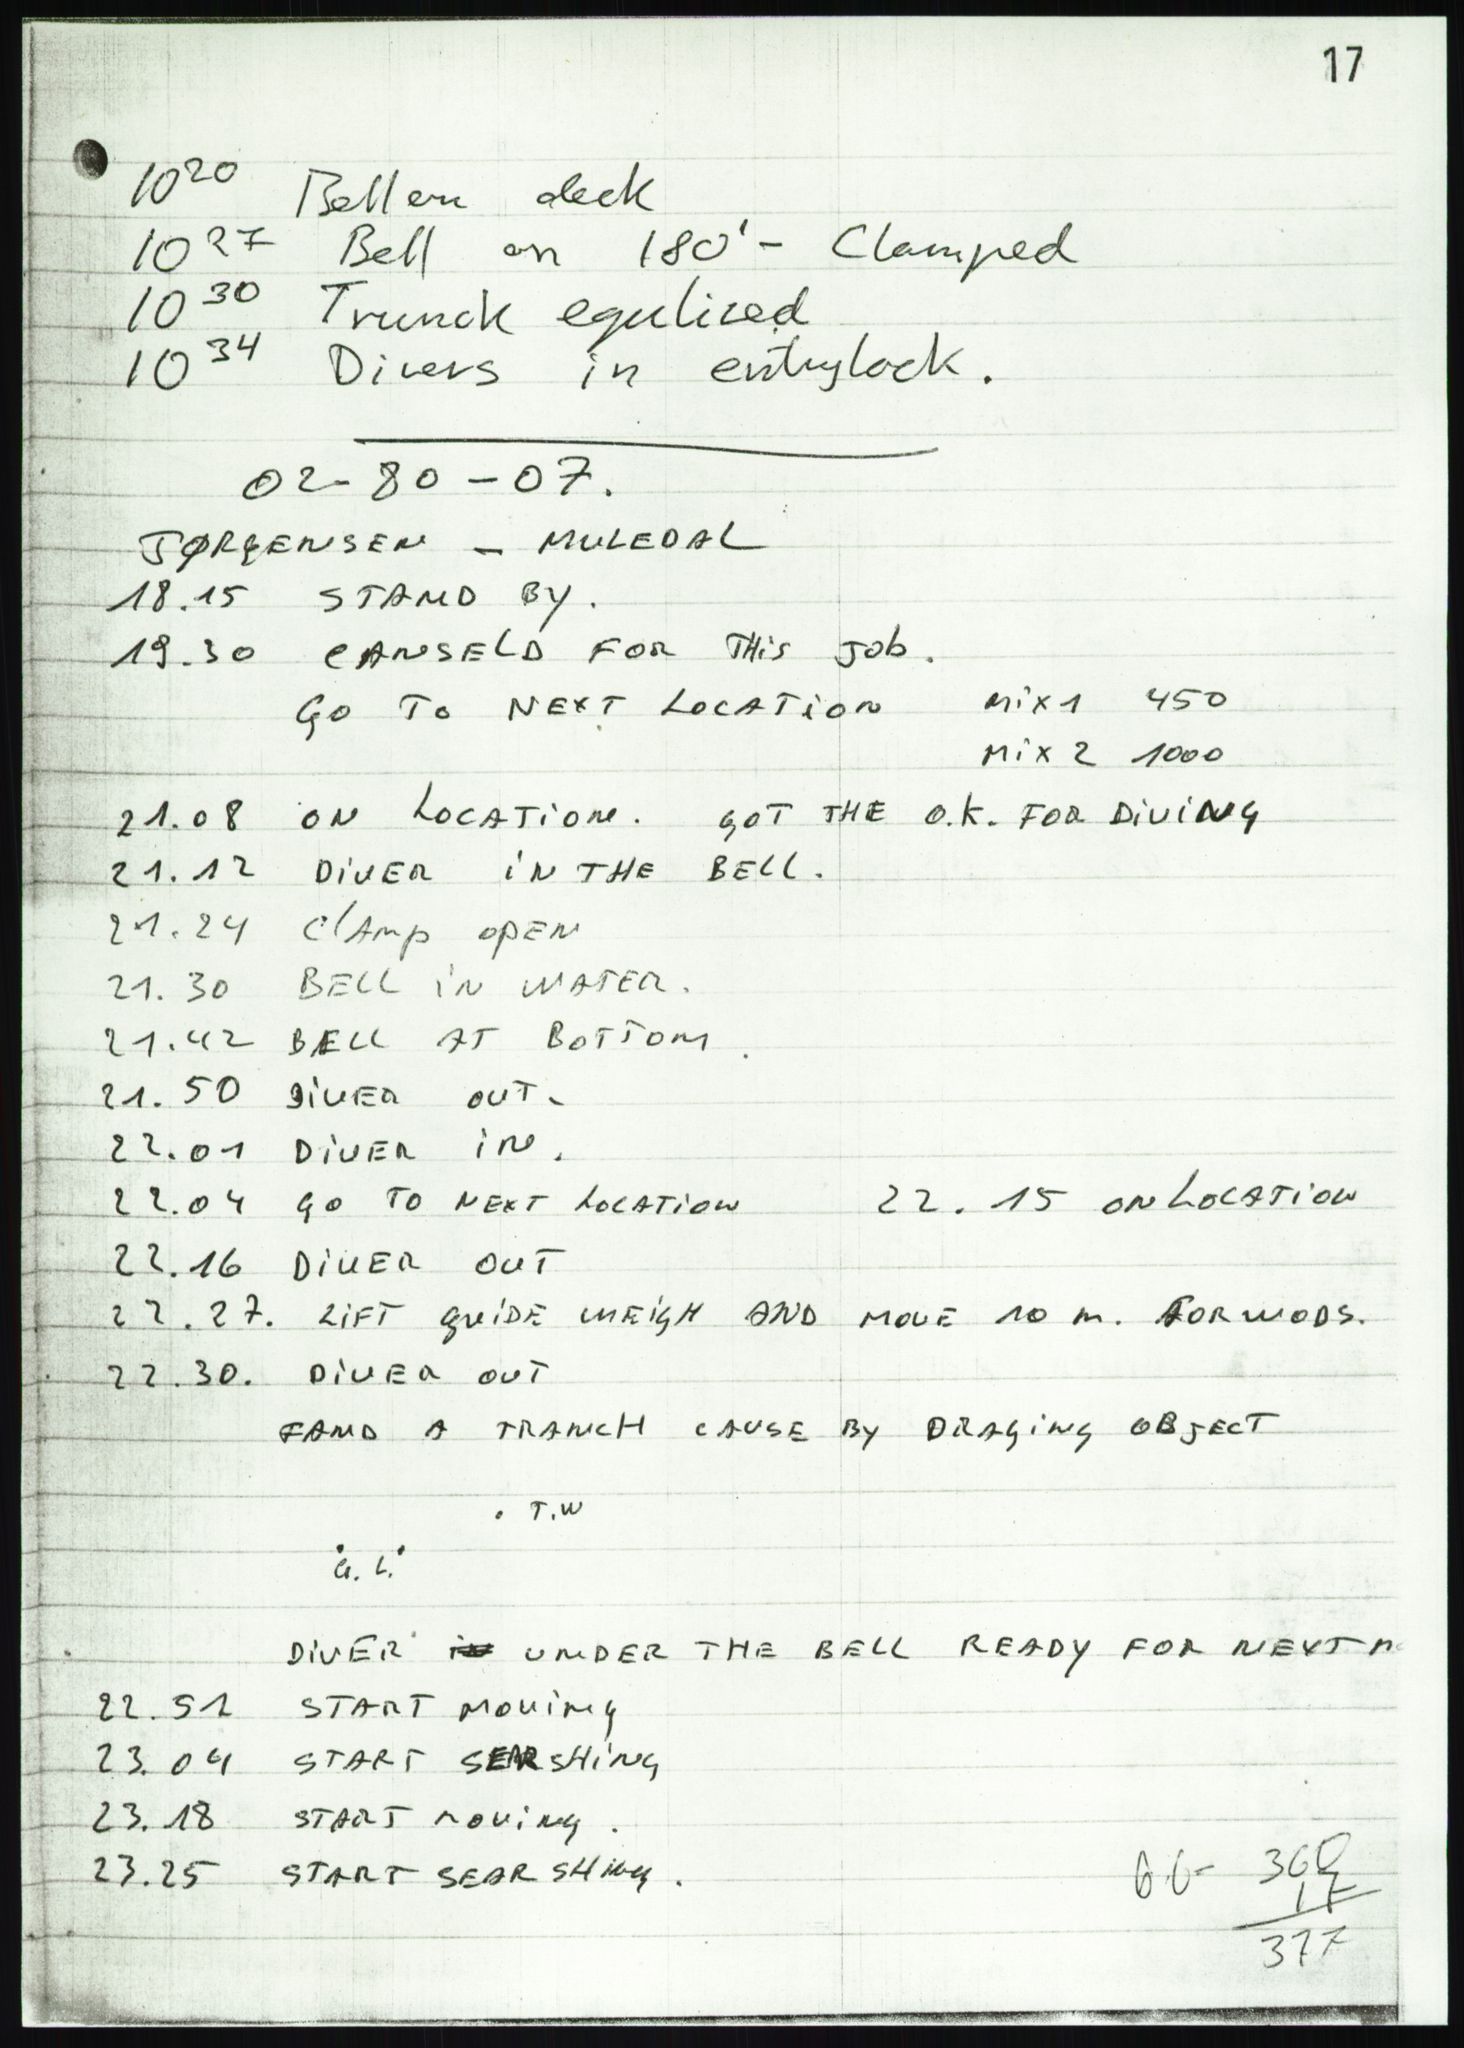 17
10 20 Bell on deck
10 27 Bell on 180' - Clamped
10 30 Trunck equlized
10 34 Divers in entrylock.
02-80-07.
JØRGENSEN - MULEDAL
18.15 STAND BY.
19.30 CANSELD FOR THiS Job.
GO TO NEXT LOCATION Mix1 450
Mix 2 1000
21.08 ON LOCATION. GOT THE O.K. FOR DIVING
21.12 DIVER IN THE BELL.
21.24 Clamp OPEN
21.30 BELL IN WATER.
21.42 BELL AT BOTTOM.
21.50 DIVER OUT.
22.01 DIVER IN.
22.04 GO TO NEXT LOCATION 22.15 ON LOCATION
22.16 DIVER OUT
22.27. LIFT GUIDE WEIGH AND MOVE 10 m. FORWODS.
22.30. DIVER OUT
FAND A TRANCH CAUSE BY DRAGING OBJECT
. T.W
G. L.
DIVER UNDER THE BELL READY FOR NEXT
22.51 START MOVING
23.04 START SEARSHING
23.18 START MOVING.
23.25 START SEARSHING.
360
17
377